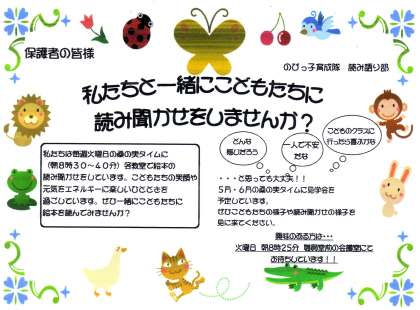 保護者の皆様
のびっ子育成隊　読み語り部
私たちと一緒にこどもたちに
読み聞かせをしませんか？
私たちは毎週火曜日の桑の実タイムに
（朝8時30～40分）各教室で絵本の
読み聞かせをしています。こどもたちの笑顔や
元気をエネルギーに楽しいひとときを
過ごしています。ぜひ一緒にこどもたちに
絵本を読んでみませんか？
どんな
感じだろう
一人で不安
だな
こどものクラスに
行ったら喜ぶかな
・・・と思っても大丈夫！！
5月・6月の桑の実タイムに見学会を
予定しています。
ぜひこどもたちの様子や読み聞かせの様子を
見に来てください。
興味のある方は・・・
火曜日　朝8時25分　職員室前の会議室にて
お待ちしています！！